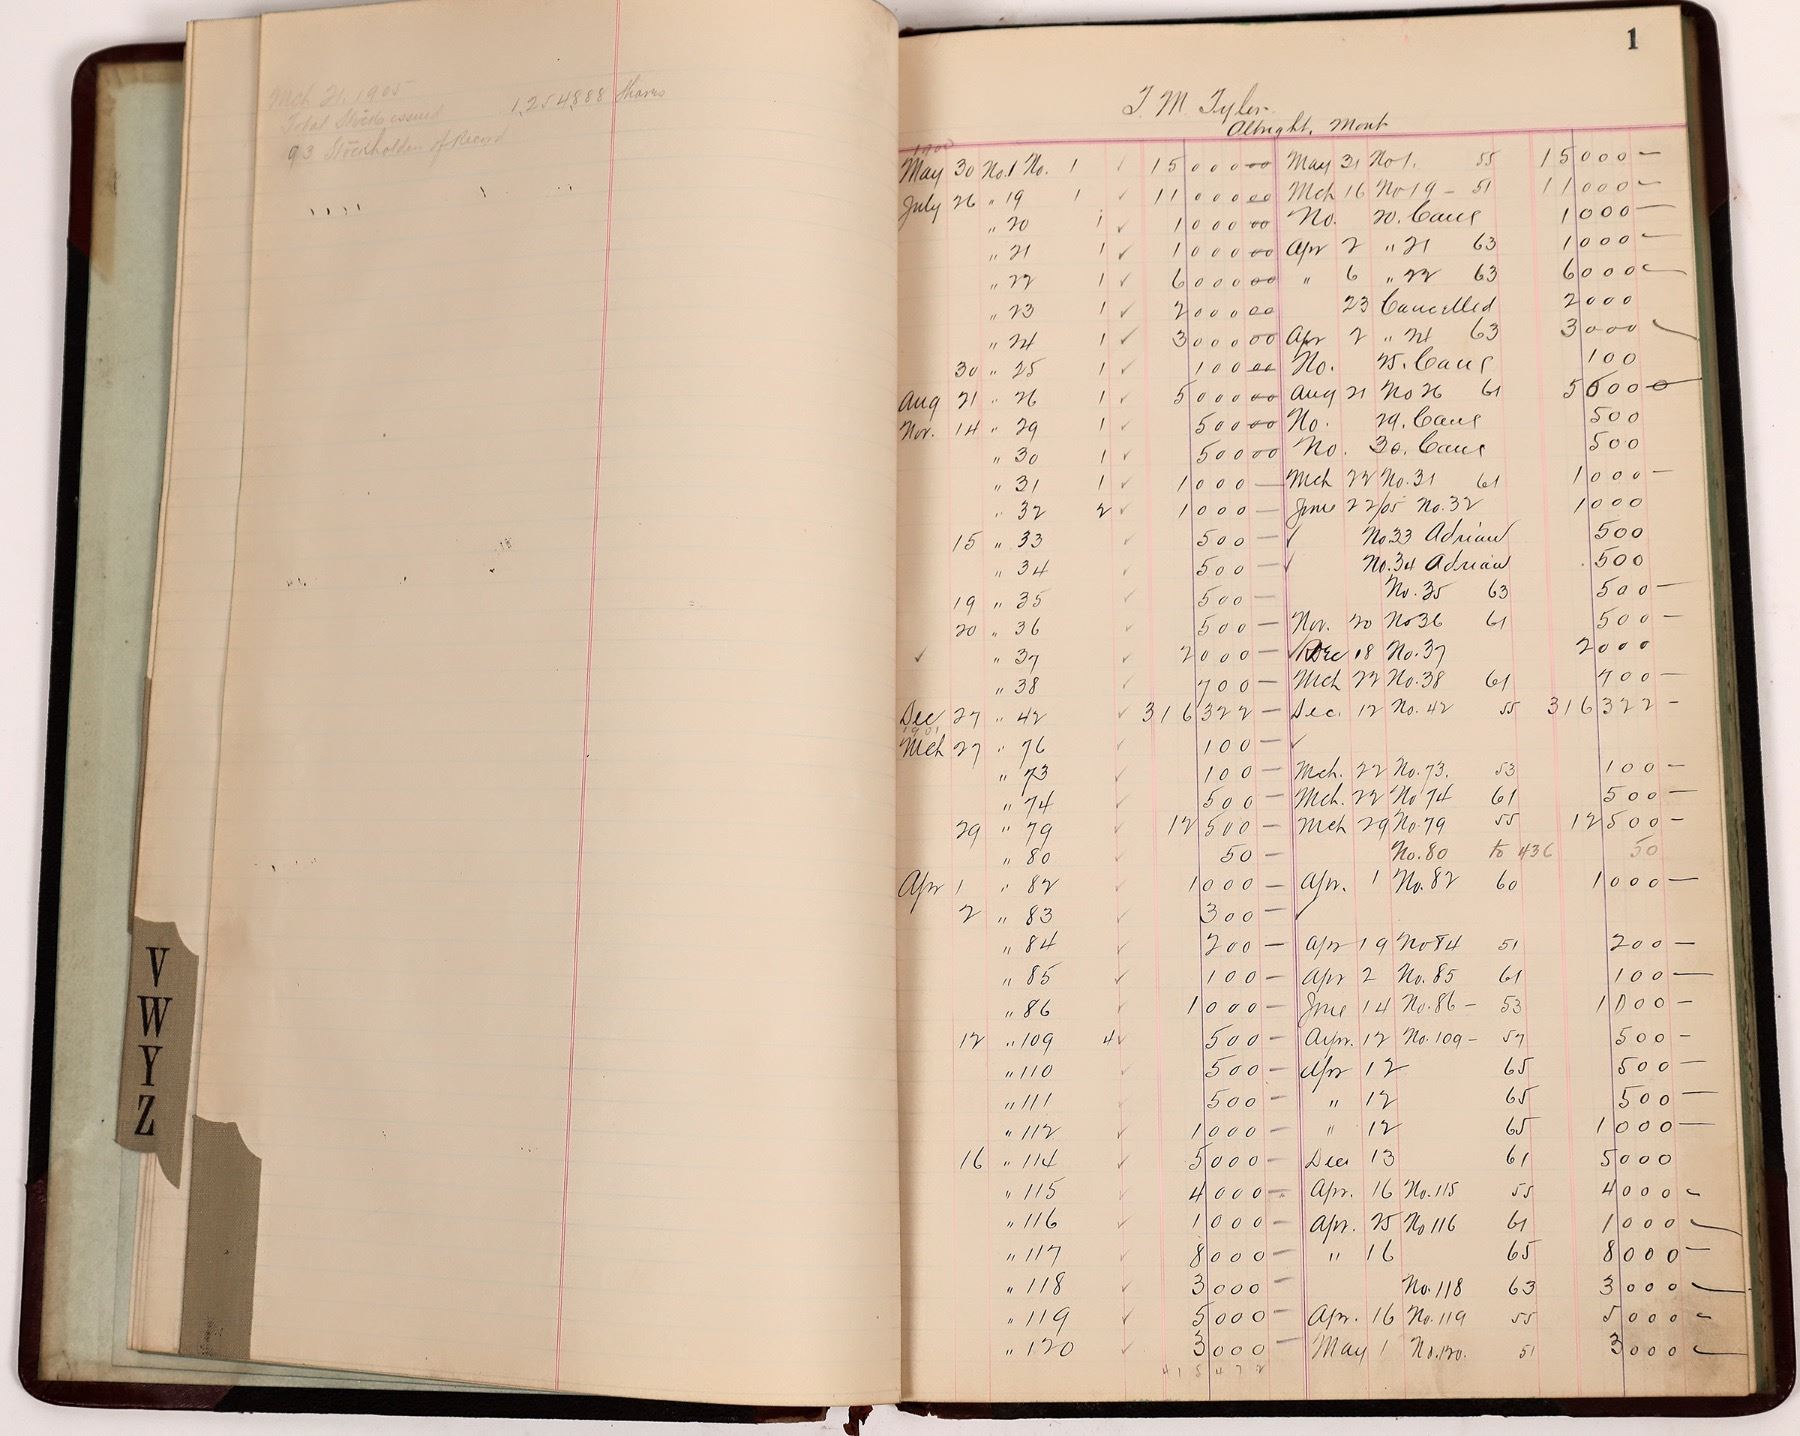 Mch 21, 1905
Total Stock issued 1,254,888 Shares
93 Stockholders of Record
V
W
Y
Z
1
T. M. Tyler
Albright, Mont
1900
May 30 No.1 No. 1 ✓ 15000 00 May 31 No 1. 55 15000 —
July 26 " 19 1 ✓ 11000 00 Mch 16 No 19 - 51 11000 —
" 20 1 ✓ 1000 00 No. 20. Canc 1000 —
" 21 1 ✓ 1000 00 Apr 2 " 21 63 1000 —
" 22 1 ✓ 6000 00 " 6 " 22 63 6000 —
" 23 1 ✓ 2000 00 23 Cancelled 2000
" 24 1 ✓ 3000 00 Apr 2 " 24 63 3000
30 " 25 1 ✓ 100 00 No. 25. Canc 100
Aug 21 " 26 1 ✓ 5000 00 Aug 21 No 26 61 5000
Nov. 14 " 29 1 ✓ 500 00 No. 29. Canc 500
" 30 1 ✓ 500 00 No. 30. Canc 500
" 31 1 ✓ 1000 — Mch 22 No. 31 61 1000 —
" 32 2 ✓ 1000 — June 22/05 No. 32 1000
15 " 33 ✓ 500 — ✓ No 33 Adrian 500
" 34 ✓ 500 — ✓ No. 34 Adrian 500
19 " 35 ✓ 500 — No. 35 63 500 —
20 " 36 ✓ 500 — Nov. 20 No 36 61 500 —
✓ " 37 ✓ 2000 — ✓ Dec 18 No. 37 2000
" 38 ✓ 700 — Mch 22 No. 38 61 700 —
Dec 27 " 42 ✓ 316322 — Dec. 12 No. 42 55 316322 —
1901
Mch 27 " 76 ✓ 100 — ✓
" 73 ✓ 100 — Mch. 22 No. 73. 53 100 —
" 74 ✓ 500 — Mch. 22 No 74 61 500 —
29 " 79 ✓ 12500 — Mch 29 No. 79 55 12500 —
" 80 ✓ 50 — No. 80 to 436 50
Apr 1 " 82 ✓ 1000 — Apr. 1 No. 82 60 1000 —
2 " 83 ✓ 300 — ✓
" 84 ✓ 200 — Apr 19 No 84 51 200 —
" 85 ✓ 100 — Apr 2 No. 85 61 100 —
" 86 ✓ 1000 — June 14 No. 86 - 53 1000 —
12 " 109 4 ✓ 500 — Apr. 12 No. 109 - 57 500 —
" 110 ✓ 500 — Apr 12 65 500 —
" 111 ✓ 500 — " 12 65 500 —
" 112 ✓ 1000 — " 12 65 1000 —
16 " 114 ✓ 5000 — Dec 13 61 5000
" 115 ✓ 4000 — Apr. 16 No. 115 55 4000 —
" 116 ✓ 1000 — Apr. 25 No 116 61 1000 —
" 117 ✓ 8000 — " 16 65 8000 —
" 118 ✓ 3000 — No. 118 63 3000 —
" 119 ✓ 5000 — Apr. 16 No. 119 55 5000 —
" 120 ✓ 3000 — May 1 No. 120. 51 3000 —
415472